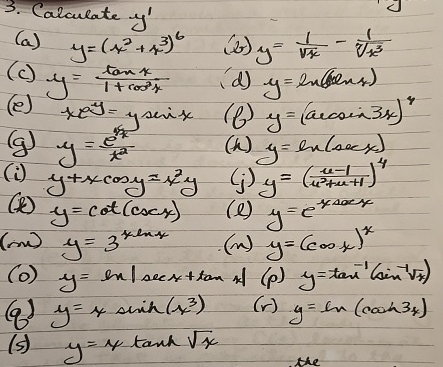 3. Calculate y'
(a) y = (x² + x³)⁶ (b) y = 1/√x − 1/⁵√x³
(c) y = tan x / (1 + cos x) (d) y = ln(x ln x)
(e) xe^y = y sin x (f) y = (arcsin 3x)⁴
(g) y = e^(1/x) / x² (h) y = ln(sec x)
(i) y + x cos y = x²y (j) y = ((u − 1)/(u² + u + 1))⁴
(k) y = cot(csc x) (l) y = e^(x sec x)
(m) y = 3^(x ln x) (n) y = (cos x)^x
(o) y = ln | sec x + tan x | (p) y = tan⁻¹(sin⁻¹ √x)
(q) y = x sinh(x³) (r) y = ln (cosh 3x)
(s) y = x tanh √x
the